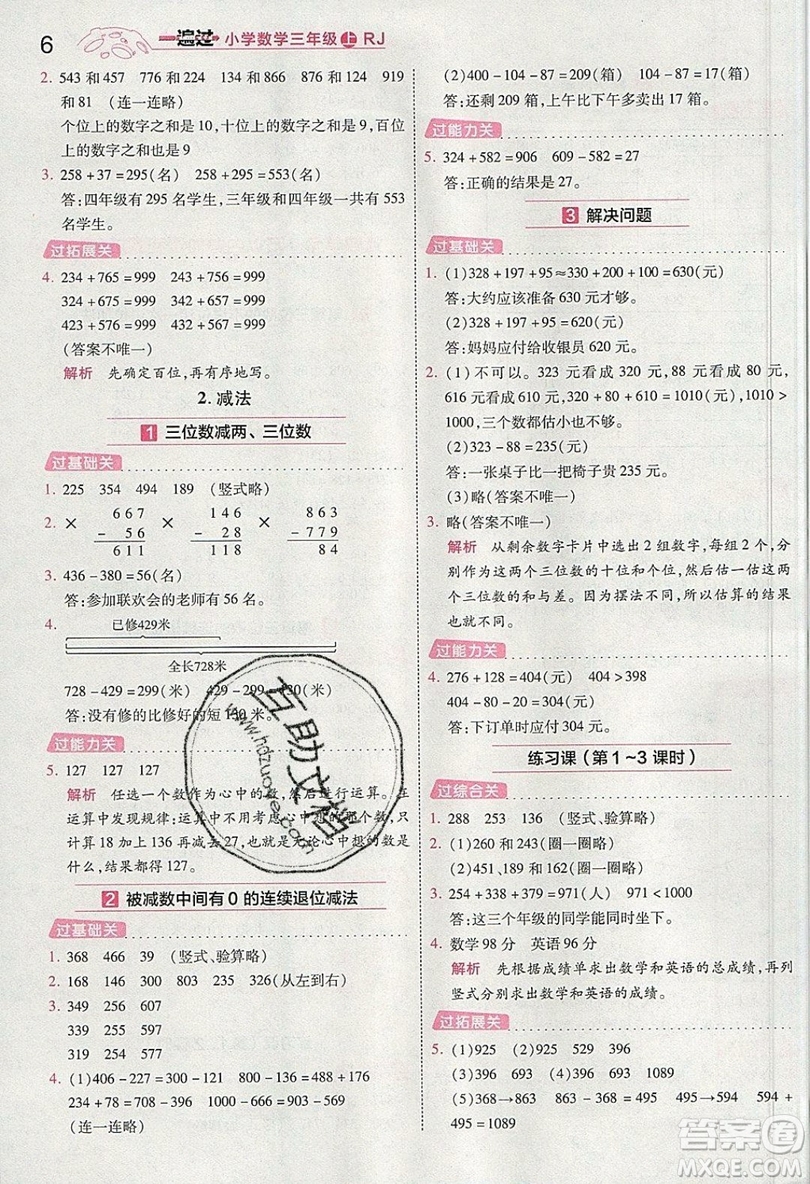 6
一遍过 小学数学三年级 上 RJ
2. 543 和 457 776 和 224 324 和 106 919
和 81 (连一连略)
个位上的数字之和是 10,十位上的数字之和是 9,百位
上的数字之和也是 9
3. 258 + 37 = 295(名) 258 + 295 = 553(名)
答:四年级有 295 名学生,三年级和四年级一共有 553
名学生。
过拓展关
4. 234 + 765 = 999 234 + 765 = 999
324 + 675 = 999 342 + 657 = 999
423 + 576 = 999 432 + 567 = 999
(答案不唯一)
解析 先确定百位,再有序地写。
2. 减法
1 三位数减两、三位数
过基础关
1. 225 354 494 189 (竖式略)
2. × 667 × 146 × 863
- 56 - 28 - 779
611 118 84
3. 436 - 380 = 56(名)
答:参加联欢会的老师有 56 名。
4.
已修429米
全长728米
728 - 429 = 299(米) 429 - 299 = 130(米)
答:没有修的比修好的短 130 米。
过能力关
5. 127 127 127
解析 任选一个数作为心中的数,然后进行运算。在
运算中发现规律:运算中不用考虑心中的数,只要计
算 18 加上 136 再减去 27,也就是说,无论心中想的数是
什么,结果都得 127。
2 被减数中间有 0 的连续退位减法
过基础关
1. 368 466 39 (竖式、验算略)
2. 168 146 300 235 740 326(从左到右)
3. 349 256 607
339 246 597
329 236 587
4. (1)406 - 227 = 179 300 - 124 = 176
234 + 78 = 312 800 - 312 = 488 488 > 176
(连一连略)
(2)400 - 104 - 87 = 209(箱) 104 - 87 = 17(箱)
答:还剩 209 箱,上午比下午多卖出 17 箱。
过能力关
5. 324 + 582 = 906 609 - 582 = 27
答:正确的结果是 27。
3 解决问题
过基础关
1. (1)328 + 197 + 95 ≈ 330 + 200 + 100 = 630(元)
答:大约应该准备 630 元才够。
(2)328 + 197 + 95 = 620(元)
答:妈妈应付给收银员 620 元。
2. (1)不可以。323 元看成 320 元,88 元看成 80 元,
616 元看成 610 元,320 + 80 + 610 = 1010(元),1010 >
1000,三个数都估小也不够。
(2)323 - 88 = 235(元)
答:一张桌子比一把椅子贵 235 元。
(3)略(答案不唯一)
3. 略(答案不唯一)
解析 从剩余数字卡片中选出 2 组数字,每组 2 个,分
别作为这两个三位数的十位和个位,然后估一估这两
个三位数的和与差。因为摆法不同,所以估算的结果
也就不同。
过能力关
4. 276 + 128 = 404(元) 404 > 398
404 - 80 - 20 = 304(元)
答:下订单时应付 304 元。
练习课(第 1~3 课时)
过综合关
1. 288 253 136 (竖式、验算略)
2. (1)260 和 243(圈一圈略)
(2)451、189 和 162(圈一圈略)
3. 254 + 338 + 349 = 941(人) 941 < 972
答:这三个年级的同学能同时坐下。
4. 数学 98 分 英语 96 分
解析 先根据成绩单求出数学和英语的总成绩,再列
竖式分别求出数学和英语的成绩。
过拓展关
5. (1)925 (2)925 529 396
(3)396 693 297 (4)297
(5)368→863 863 - 368 = 495 495→594 594 +
495 = 1089
互助文档
www.hdzuoye.com
答案圈
MXQE.COM